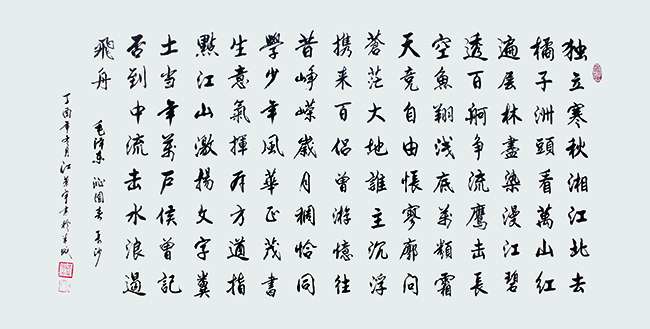 独立寒秋湘江北去
橘子洲頭看萬山紅
遍层林盡染漫江碧
透百舸争流鹰击長
空魚翔浅底萬類霜
天竞自由悵寥廓问
蒼茫大地誰主沉浮
携来百侣曾游憶往
昔峥嵘歲月稠恰同
學少年風華正茂書
生意氣揮斥方遒指
點江山激揚文字糞
土当年萬户侯曾記
否到中流击水浪遏
飛舟
毛泽东 沁園春 長沙
丁酉年